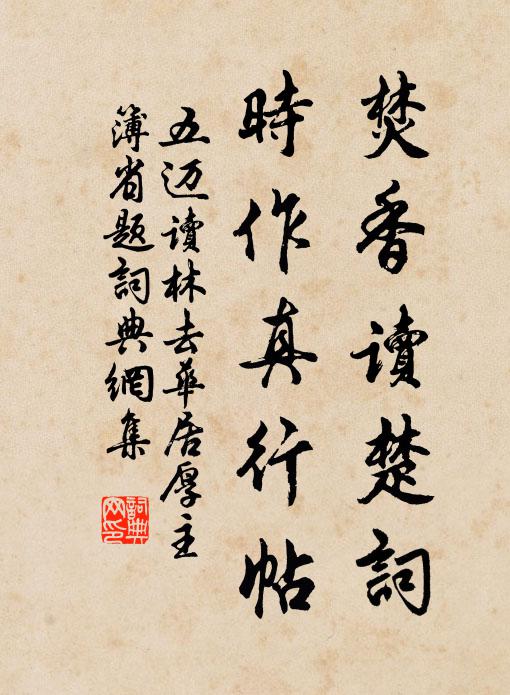 焚香讀楚詞
時作真行帖
五迈讀林去華居厚主
簿省題詞典網集
詞典网印